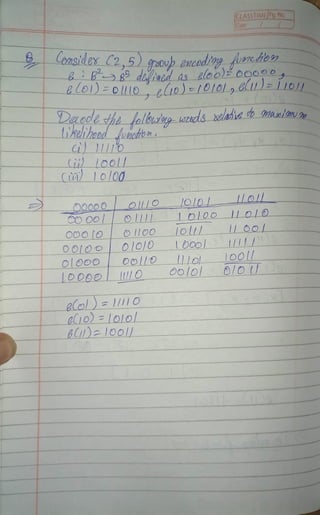 CLASSTIME Pg. No.
Date / /
Q Consider (2,5) group encoding function
e : B² → B⁵ defined as e(00) = 00000,
e(01) = 01110, e(10) = 10101, e(11) = 11011
Decode the following words relative to maximum
likelihood function.
(i) 11110
(ii) 10011
(iii) 10100
⇒ 00000 01110 10101 11011
00001 01111 10100 11010
00010 01100 10111 11001
00100 01010 10001 11111
01000 00110 11101 10011
10000 11110 00101 01011
e(01) = 11110
e(10) = 10101
e(11) = 10011